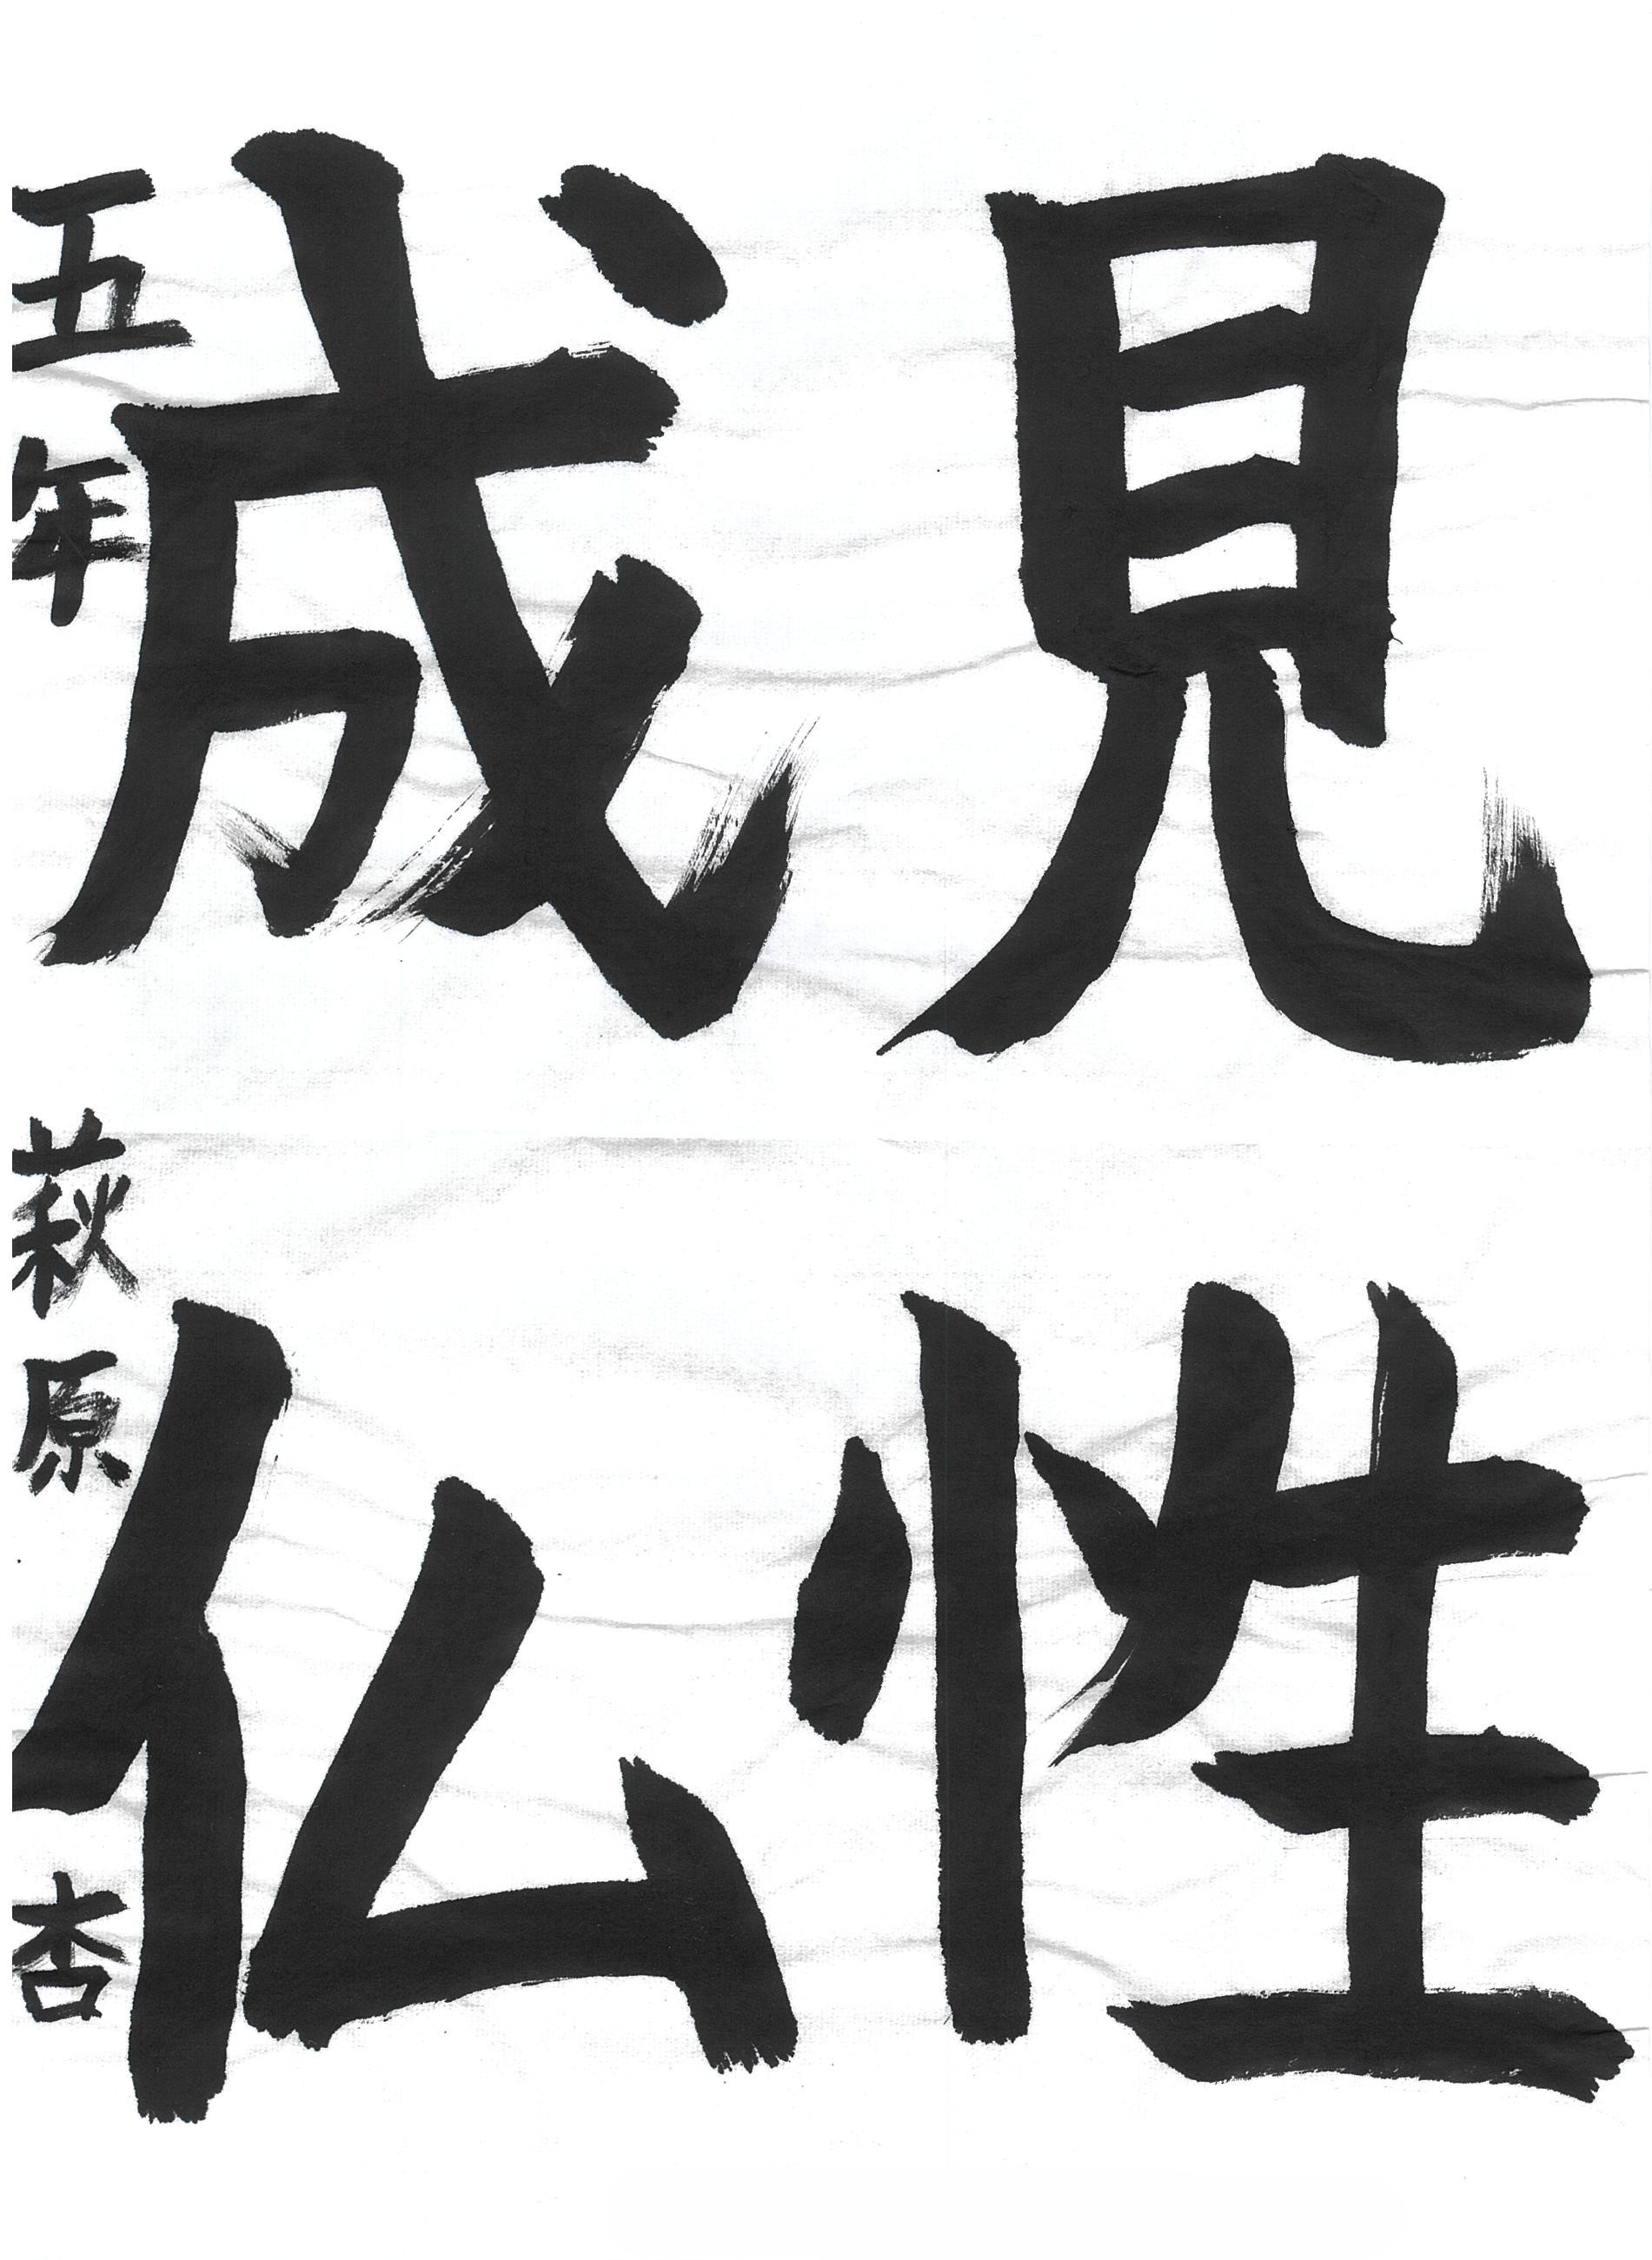 見性
成仏
五年 萩原 杏